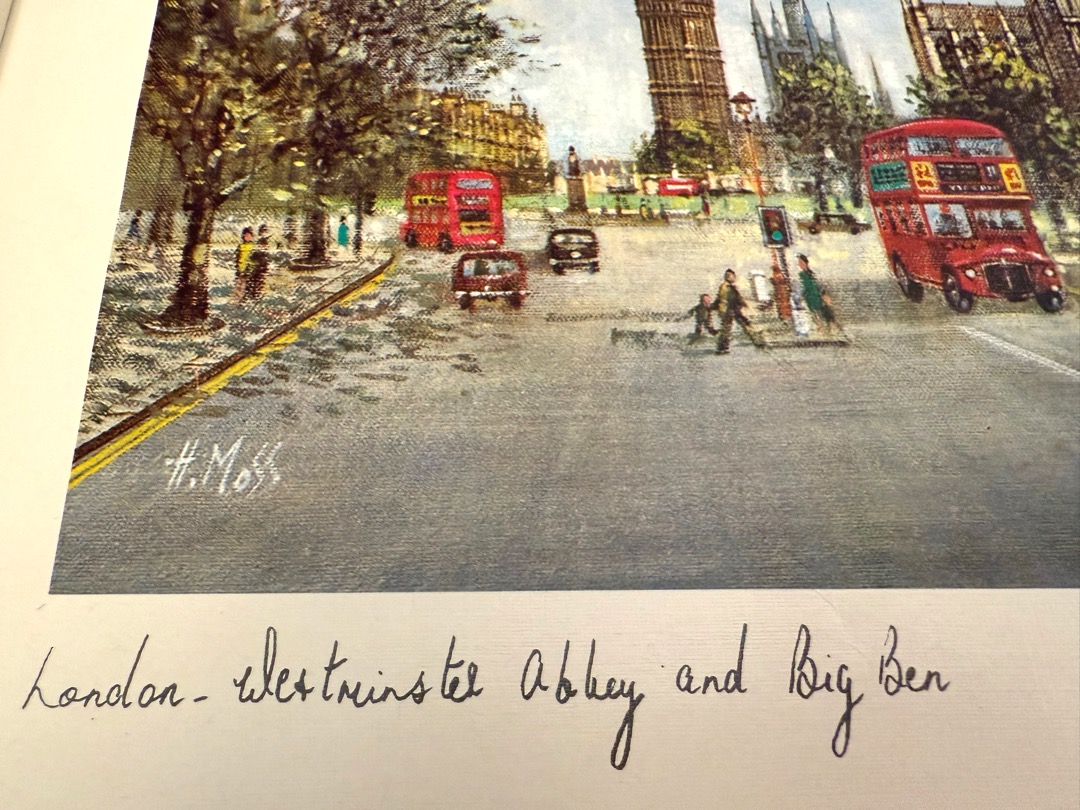 H. Moss
London - Westminster Abbey and Big Ben